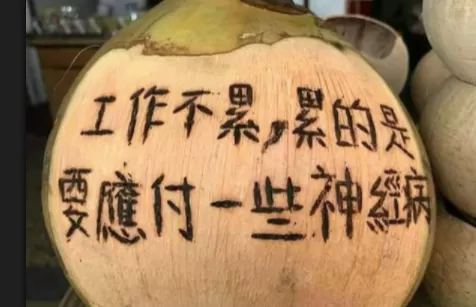 工作不累，累的是
要應付一些神經病